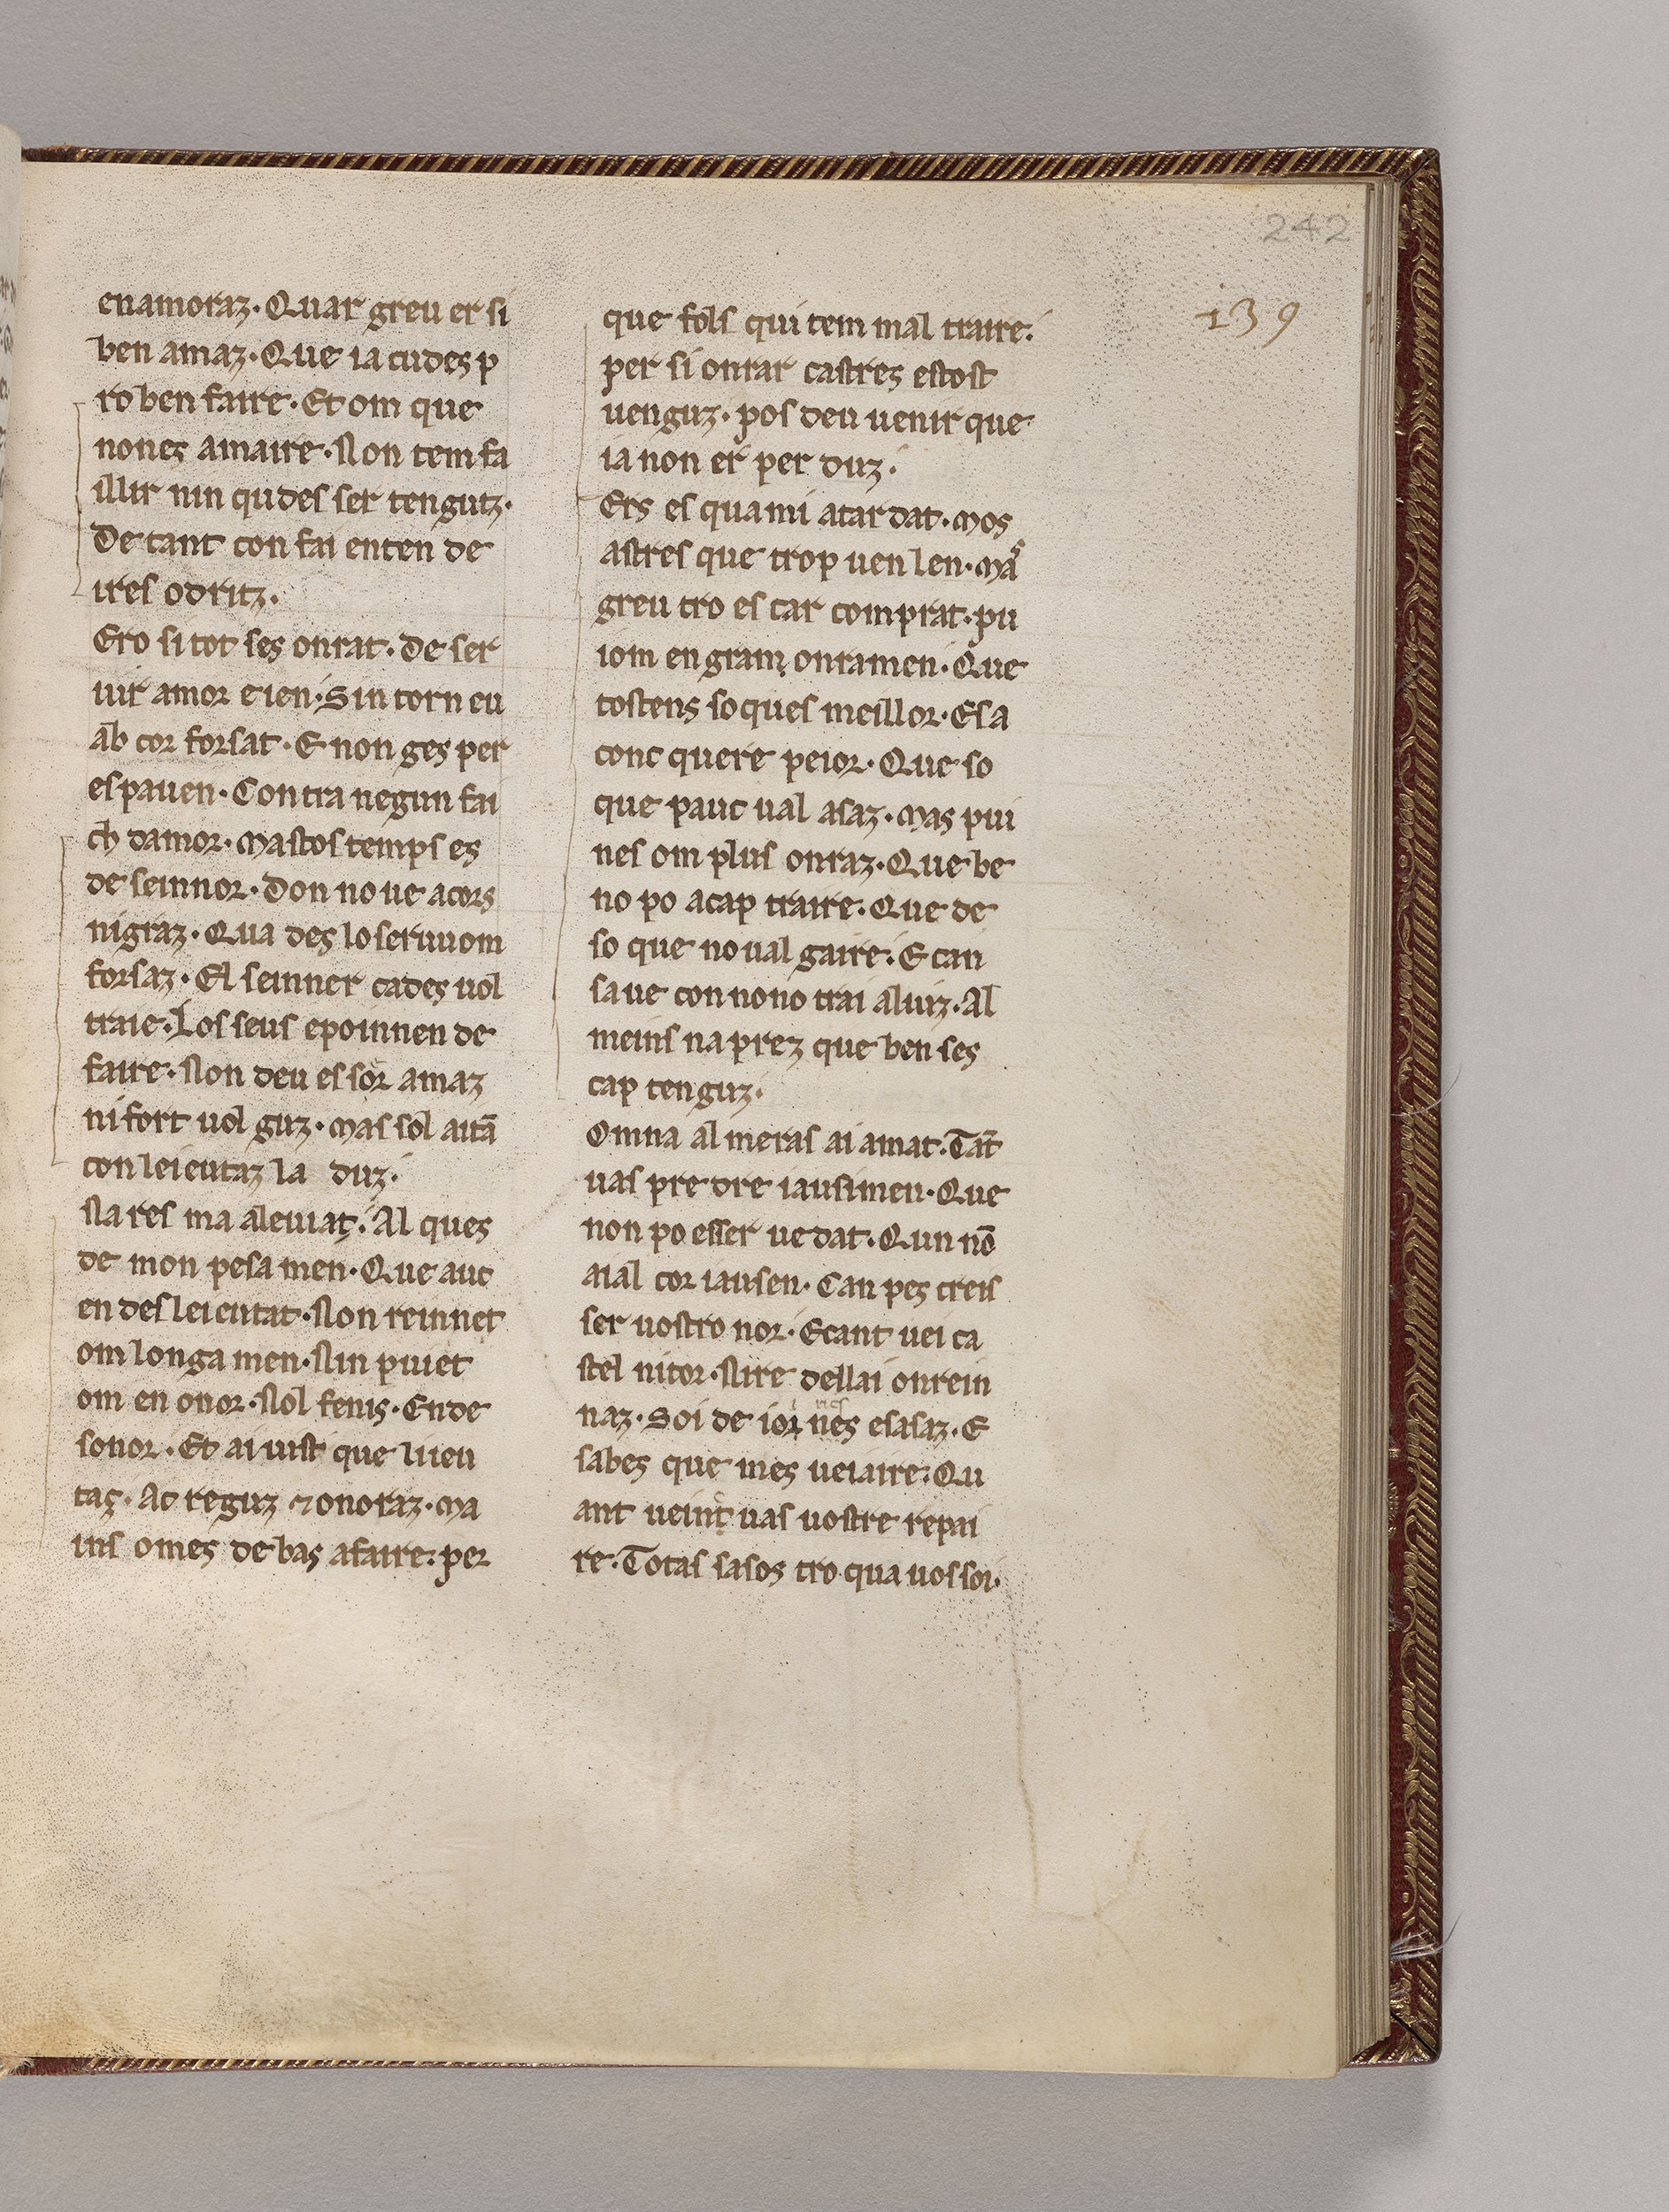 242
139
enamoraz·Quar greu er si
ben amaz·Que ia cudes p
ro ben faire·Et om que
nones amaire·Non tem fa
illir nin qudes ser tengutz·
De tant con fai enten de
ires odritz·
Ero si tot ses onrat·De ser
uir amor e ien·Sin torn eu
ab cor forsat·E non ges per
espauen·Contra negun fai
ch damor·mastos temps es
de seinnor·Don no ue acors
nigraz·Qua des lo seruuom
forsaz·El seinner cades uol
traie·Los seus epoinnen de
faire·Non deu es sor amaz
ni fort uol guz·mas sol aitā
con leieutaz la duz·
Na res ma aleuiat·Al ques
de mon pesamen·Que auc
en des leieutat·Non reinnet
om longa men·Nin puiet
om en onor·Nol fenis·Ende
sonor·Et ai uist que liieu
taz·Ac reguz ⁊onoraz·ma
ins omes de bas afaire·per
que fols qui tem mal traire·
per si onrar castres estost
uenguz·pos deu uenir que
ia non er per duz·
Ers es quami atardat·mos
astres que trop uen len·mas
greu tro es car comprat·pu
iom en gram onramen·Que
tostens so ques meillor·Es a
conc quere peior·Que so
que pauc ual asaz·mas pui
nes om plus onraz·Que be
no po acap traire·Que de
so que no ual gaire·E can
saue con nono trai aluiz·Al
meins na prez que ben ses
cap tenguz·
Omna al meras ai amat·Tāt
uas pre dre iausimen·Que
non po esser uedat·Qun nō
aial cor iausen·Can pes creis
ser uostro nor·Ecant uei ca
stel nitor·Nire dellai onrein
naz·Soi de ior nes esasaz·E
sabes que mes ueiaire·Qu
ant ueint uas uostre repai
re·Totas sasos tro qua uos soi·